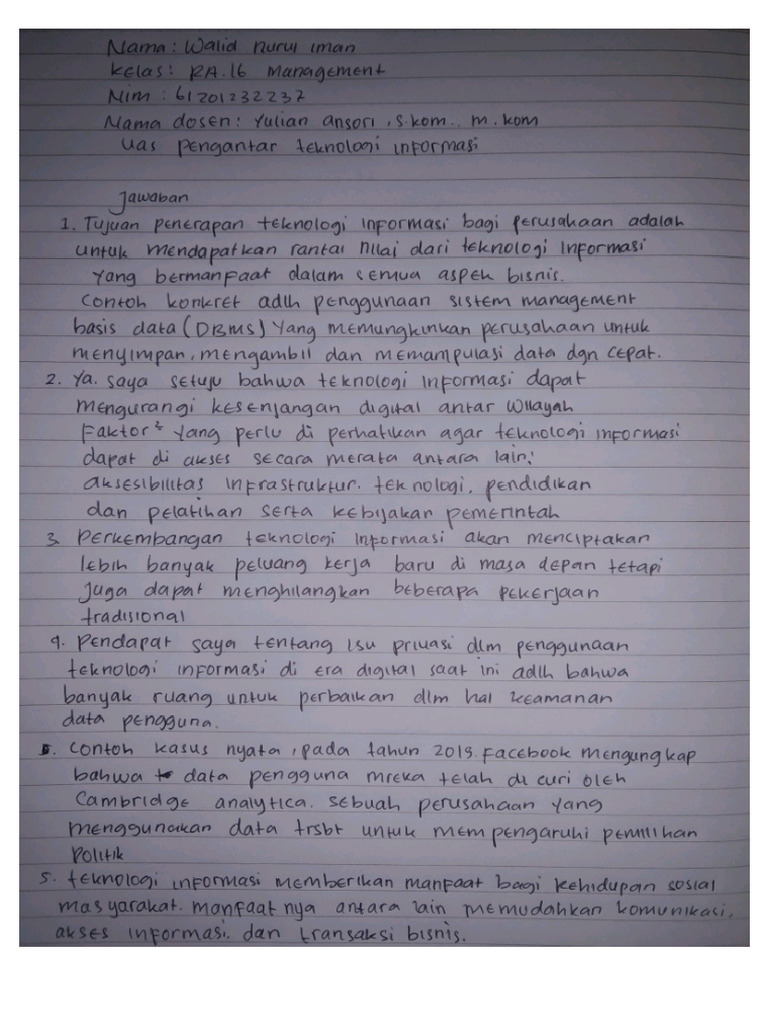 Nama : Walid nurul iman
Kelas : RA.16 Management
Nim : 61201232237
Nama dosen : Yulian ansori, S.kom., m.kom
Uas pengantar teknologi informasi
Jawaban
1. Tujuan penerapan teknologi informasi bagi perusahaan adalah
untuk mendapatkan rantai nilai dari teknologi informasi
yang bermanfaat dalam semua aspek bisnis.
Contoh konkret adlh penggunaan sistem management
basis data (DBMS) yang memungkinkan perusahaan untuk
menyimpan, mengambil dan memampulasi data dgn cepat.
2. Ya. saya setuju bahwa teknologi informasi dapat
mengurangi kesenjangan digital antar wilayah
Faktor² yang perlu di perhatikan agar teknologi informasi
dapat di akses secara merata antara lain:
aksesibilitas infrastruktur. teknologi, pendidikan
dan pelatihan serta kebijakan pemerintah
3. Perkembangan teknologi informasi akan menciptakan
lebih banyak peluang kerja baru di masa depan tetapi
juga dapat menghilangkan beberapa pekerjaan
tradisional
4. Pendapat saya tentang isu privasi dlm penggunaan
teknologi informasi di era digital saat ini adlh bahwa
banyak ruang untuk perbaikan dlm hal keamanan
data pengguna.
. Contoh kasus nyata, pada tahun 2019. Facebook mengungkap
bahwa data pengguna mreka telah di curi oleh
Cambridge analytica. sebuah perusahaan yang
menggunakan data trsbt untuk mempengaruhi pemilihan
Politik
5. teknologi informasi memberikan manfaat bagi kehidupan sosial
masyarakat. manfaatnya antara lain memudahkan komunikasi,
akses informasi. dan transaksi bisnis.